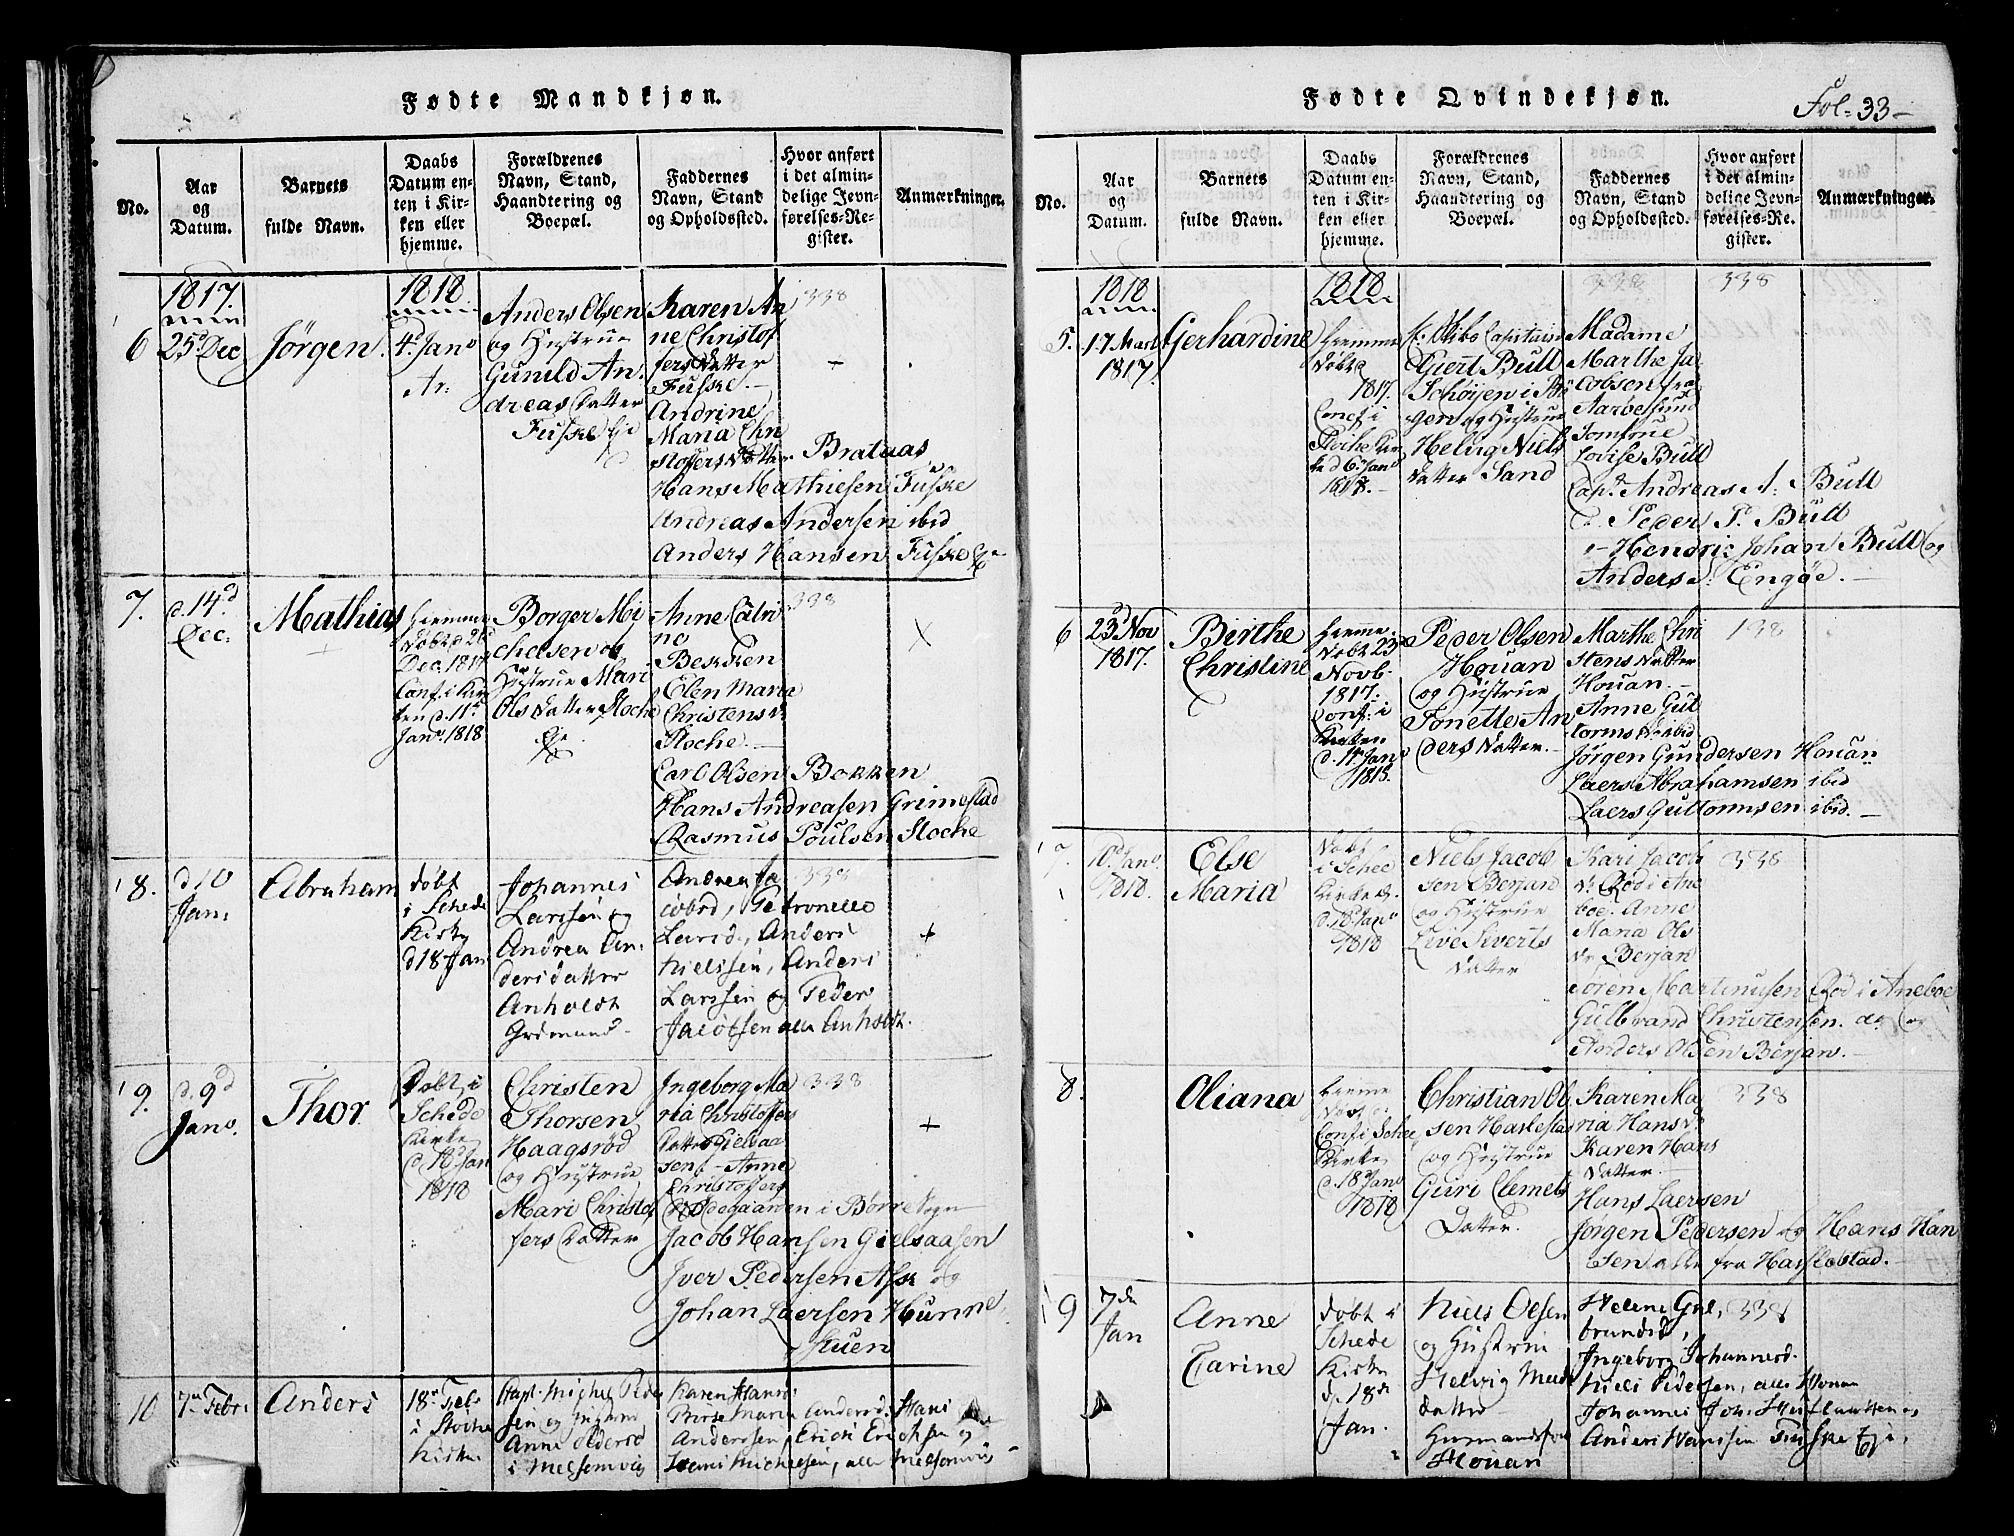 Fødte Mandkjøn.
No.
Aar
og
Datum.
Barnets
fulde Navn.
Daabs
Datum en-
ten i Kir-
ken eller
hjemme.
Forældrenes
Navn, Stand,
Haandtering og
Boepæl.
Faddernes
Navn, Stand
og Opholdssted.
Hvor anført
i det almin-
delige Jevn-
førelses-Re-
gister.
Anmærkninger.
1817.
6
25d Dec
Jørgen.
1818
4d Jano
Anders Olsen
og Hustrue
Gunild An-
dreas Datter
Fuske Eje
Karen An
ne Christof
fers Datter
Fuske.
Andrine
Maria Chri
stoffers Datter Brataas
Hans Mathiesen Fuske
Andreas Andersen ibid
Anders Hansen Fuske Eje
338
7.
d. 14d
Dec:
Mathias
Hiemme
døbt d 26
Dec. 1817
Conf. i Kir
ken d. 11te
Jano. 1818
Borger Mi
chelsen og
Hustrue Mari
Ols Datter Stoche
Eje
Anne Catri
ne
Bekken
Elen Maria
Christens D.
Stoche.
Carl Olsen Bokken
Hans Andreasen Grimestad
Rasmus Poulsen Stoche
338
8.
d 10
Jan:
Abraham
døbt
i Schede
Kirke
d 18 Jan
Johannes
Larssen og
Andrea An-
dersdatter
Anholdt
Andrea Ja
cobsd, Petronelle
Larsd, Anders
Nielssen, Anders
Larssen og Peder
Jacobsen alle Anholdt.
338
9.
d. 9d
Jano.
Thor
Døbt i
Schede
Kirke
d 18 Jan
1818
Christen
Thorsen
Haagsrød
og Hustrue
Mari Christof
fers Datter
Ingeborg Ma
ria Christoffers
Datter Gielsaa
sen - Anne
Christoffers
Ødegaarden i Børre Sogn
Jacob Hansen Gielsaasen
Iver Pedersen Ask og
Johan Laersen Hunne
stuen
338
10
7de Febr
Anders
18de Feb
i Stoche
Kirke
Capt. Michel Peder
sen og Hustrue
Anne Pedersd
i Melsomvig
Karen Hansd:
Birte Maria Andersd: Hans
Anderssen, Erich Erichsen og
Hans Michelsen, alle Melsomvig
Fødte Qvindekjøn.
Fol=33-
No.
Aar
og
Datum.
Barnets
fulde Navn.
Daabs
Datum en-
ten i Kir-
ken eller
hjemme.
Forældrenes
Navn, Stand,
Haandtering og
Boepæl.
Faddernes
Navn, Stand
og Opholdsted.
Hvor anført
i det almin-
delige Jevn-
førelses-Re-
gister.
Anmærkninger.
1818
5.
17 Mart
1817.
Gerhardine
1818
Hiemme
døbt
1817.
Conf. i
Kir
ke d 6. Jano
1818.
Skibs Capitain
Giert Bull
Schøijen i
og Hustrue
Helvig Niels
Datter Sand
338
Madame
Marthe Ja-
cobsen fra
Aarøesund
Jomfrue
Lovise Bull
Cap. Andreas A: Bull
Peder P. Bull
Hendric Johan Bull og
Anders Engøe.
338
6
23d Nov
1817.
Birthe
Christine
Hieme
døbt 23d
Novb.
1817.
Conf: i
Kirken
d. 14 Jano
1818.
Peder Olsen
Houan
og Hustrue
Tonette An
ders Datter.
Marthe Chri
stens Datter
Houan.
Anne Gut
torms D ibid
Jørgen Gundersen Houan
Laers Abrahamsen ibid
Laers Guttormsen ibid.
138
7.
10d Jano
1818.
Else
Maria
Døbt
i Schee
Kirke
d. 18 Jano
1818
Niels Jacob
sen Berjan
og Hustrue
Live Siverts
Datter
Kari Jacob
D: Rød i Ane
boe. Anne
Maria Ols
D: Berjan
Søren Martinusen Rød i Aneboe
Gulbrand Christensen. do og
Anders Olsen Berjan.
338
8.
Oliana
hieme
døbt
Conf i Schee
Kirke
d. 18 Jano
1818
Christian Ol
sen Haslestad
og Hustrue
Guri Clemets
Datter.
Karen Ma
ria Hans D
Karen Hans
Datter.
Hans Laersen
Jørgen Pedersen og Hans Han
sen alle fra Haslestad.
338
9
7de
Jan
Anne
Carine
døbt i
Schede
Kirke
d. 18de
Jan.
Niels Olsen
og Hustrue
Helvig Mads
datter
Houan
Helene Gul-
brandsd,
Ingeborg Johannesd.
Niels Pedersen, alle Houan
Johannes
Anders Hanssen Fuske Eje.
338